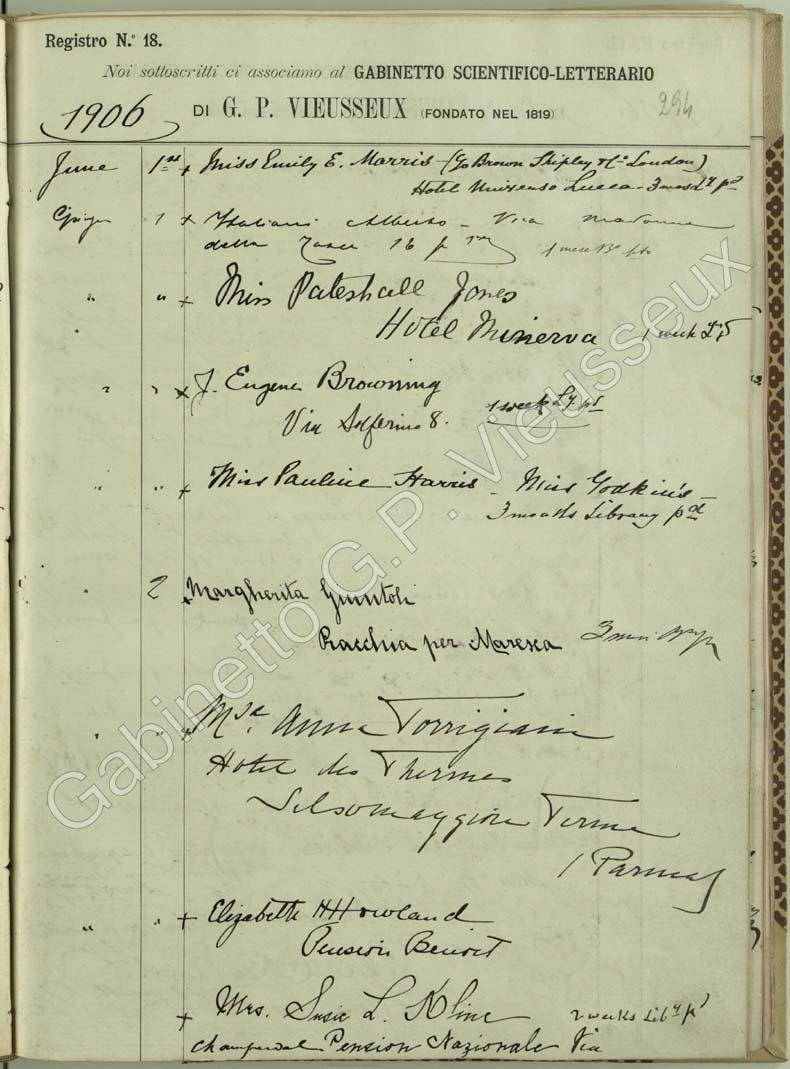 Registro N.º 18.
Noi sottoscritti ci associamo al GABINETTO SCIENTIFICO-LETTERARIO
1906 DI G. P. VIEUSSEUX (FONDATO NEL 1819) 294
June 1st + Miss Emily E. Marris (c/o Brown Shipley & Co London)
Hotel Universo Lucca - 3 mos Ly pd
1 x Italiani Alberto - Via Madonna
della 16 p 1 mese
" " + Miss Pateshall Jones
Hotel Minerva 1 week
" " x J. Eugene Browning
Via Solferino 8. 1 week Ly pd
" " + Miss Pauline Harris - Miss Godkin's -
3 months Library pd
2 Margherita Giuntoli
Racchia per Maresca 3 mesi
" " Msa Anna Torrigiani
Hotel des Thermes
Salsomaggiore Terme
(Parma)
" " + Elizabeth H Howland
Pension Benoit
+ Mrs. Susie L. Kline 2 weeks Liby pd
Pension Nazionale Via
Gabinetto G.P. Vieusseux